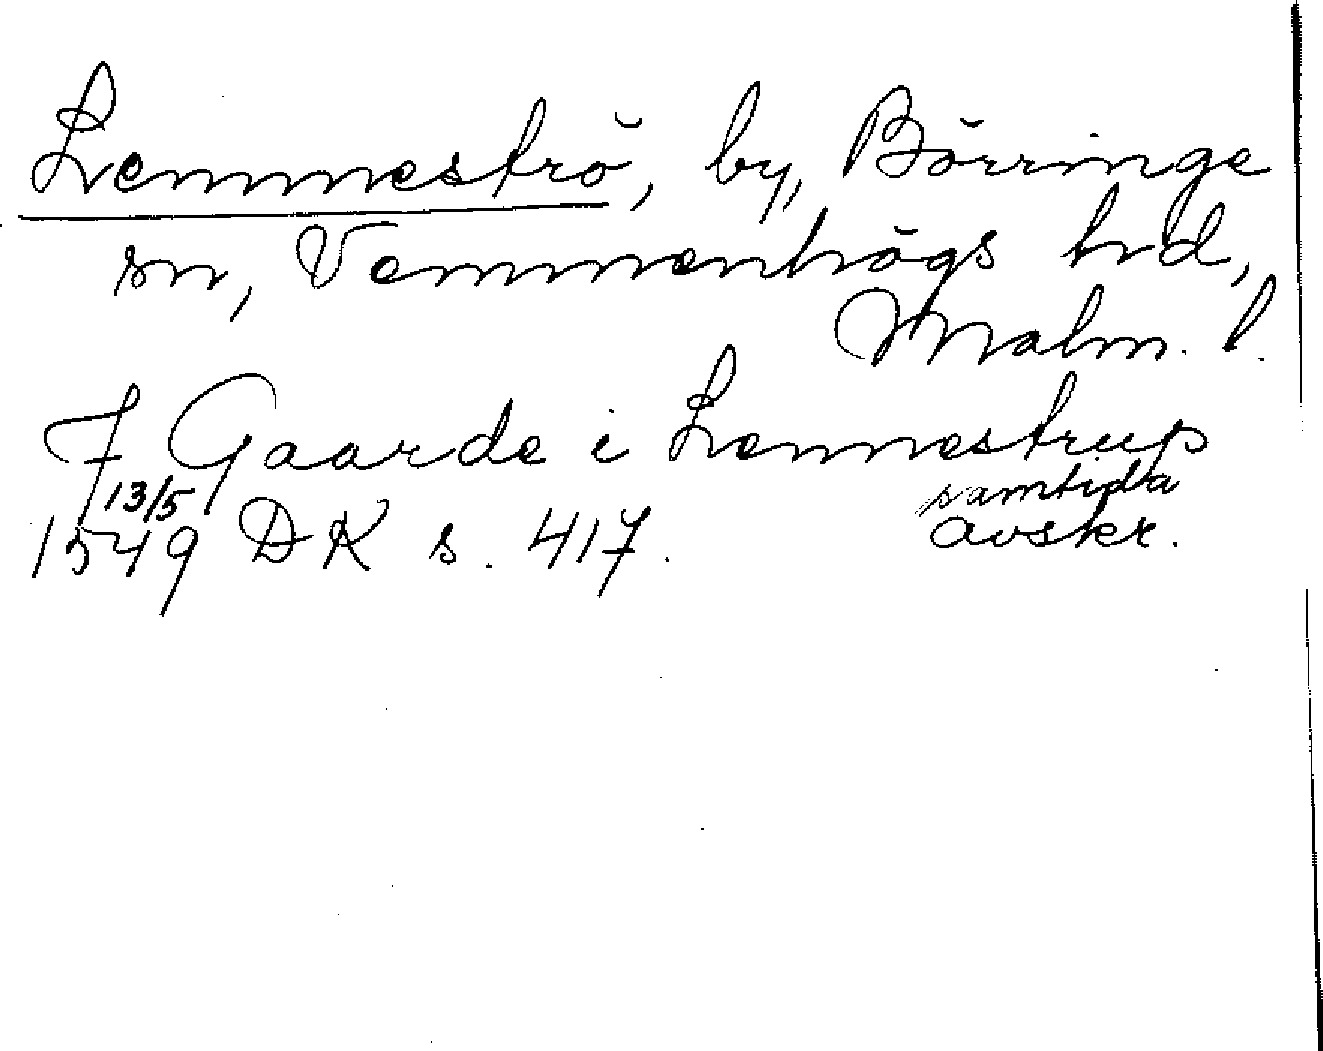 Lemmeströ, by, Börringe
sn, Vemmenhögs hd,
Malm. l.
7 Gaarde i Lennestrup
13/5 samtida
1549 DK s. 417. avskr.